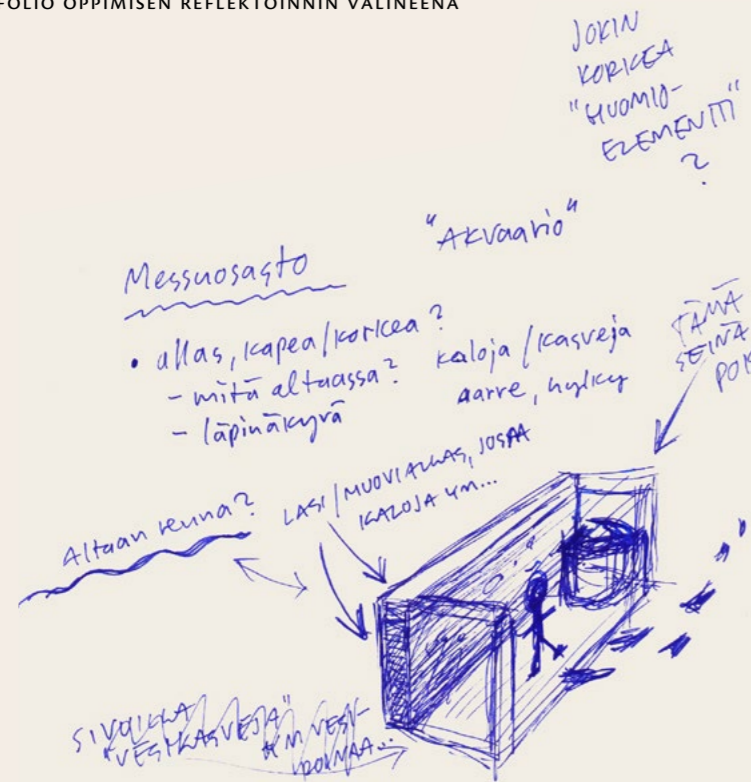 FOLIO OPPIMISEN REFLEKTOINNIN VÄLINEENÄ
JOKIN
KORKEA
"HUOMIO-
ELEMENTTI"
?
"AKVaario"
Messuosasto
• allas, kapea/korkea?
- mitä altaassa?
- läpinäkyvä
kaloja/kasveja
aarre, hylky
TÄMÄ
SEINÄ
POIS
Altaan reuna?
LASI/MUOVIALLAS, JOSSA
KALOJA YM...
SIVUILLA
"VESIKASVEJA"